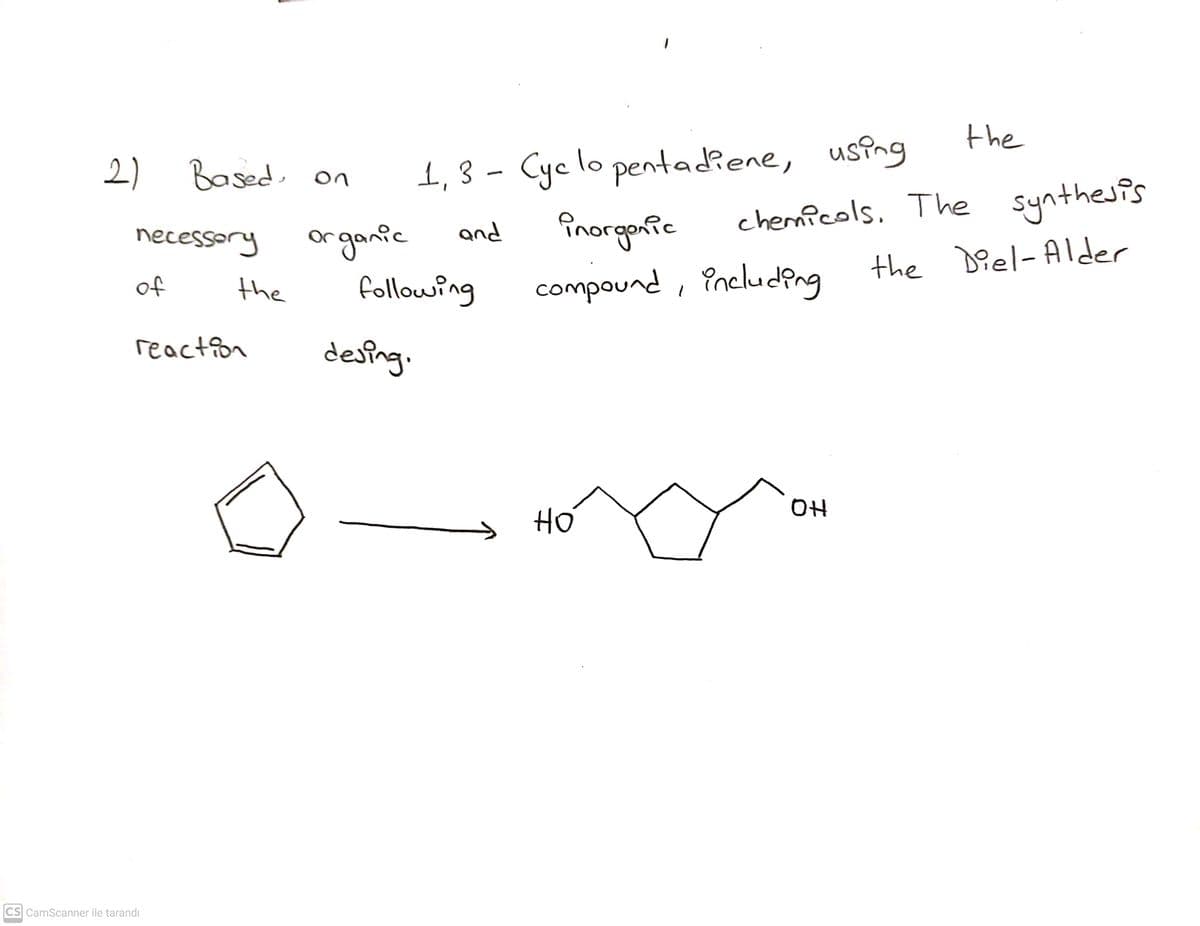 2) Based on 1,3 - Cyclopentadiene, using the
necessary organic and inorganic chemicals. The synthesis
of the following compound, including the Diel-Alder
reaction desing.
HO OH
CS CamScanner ile tarandı